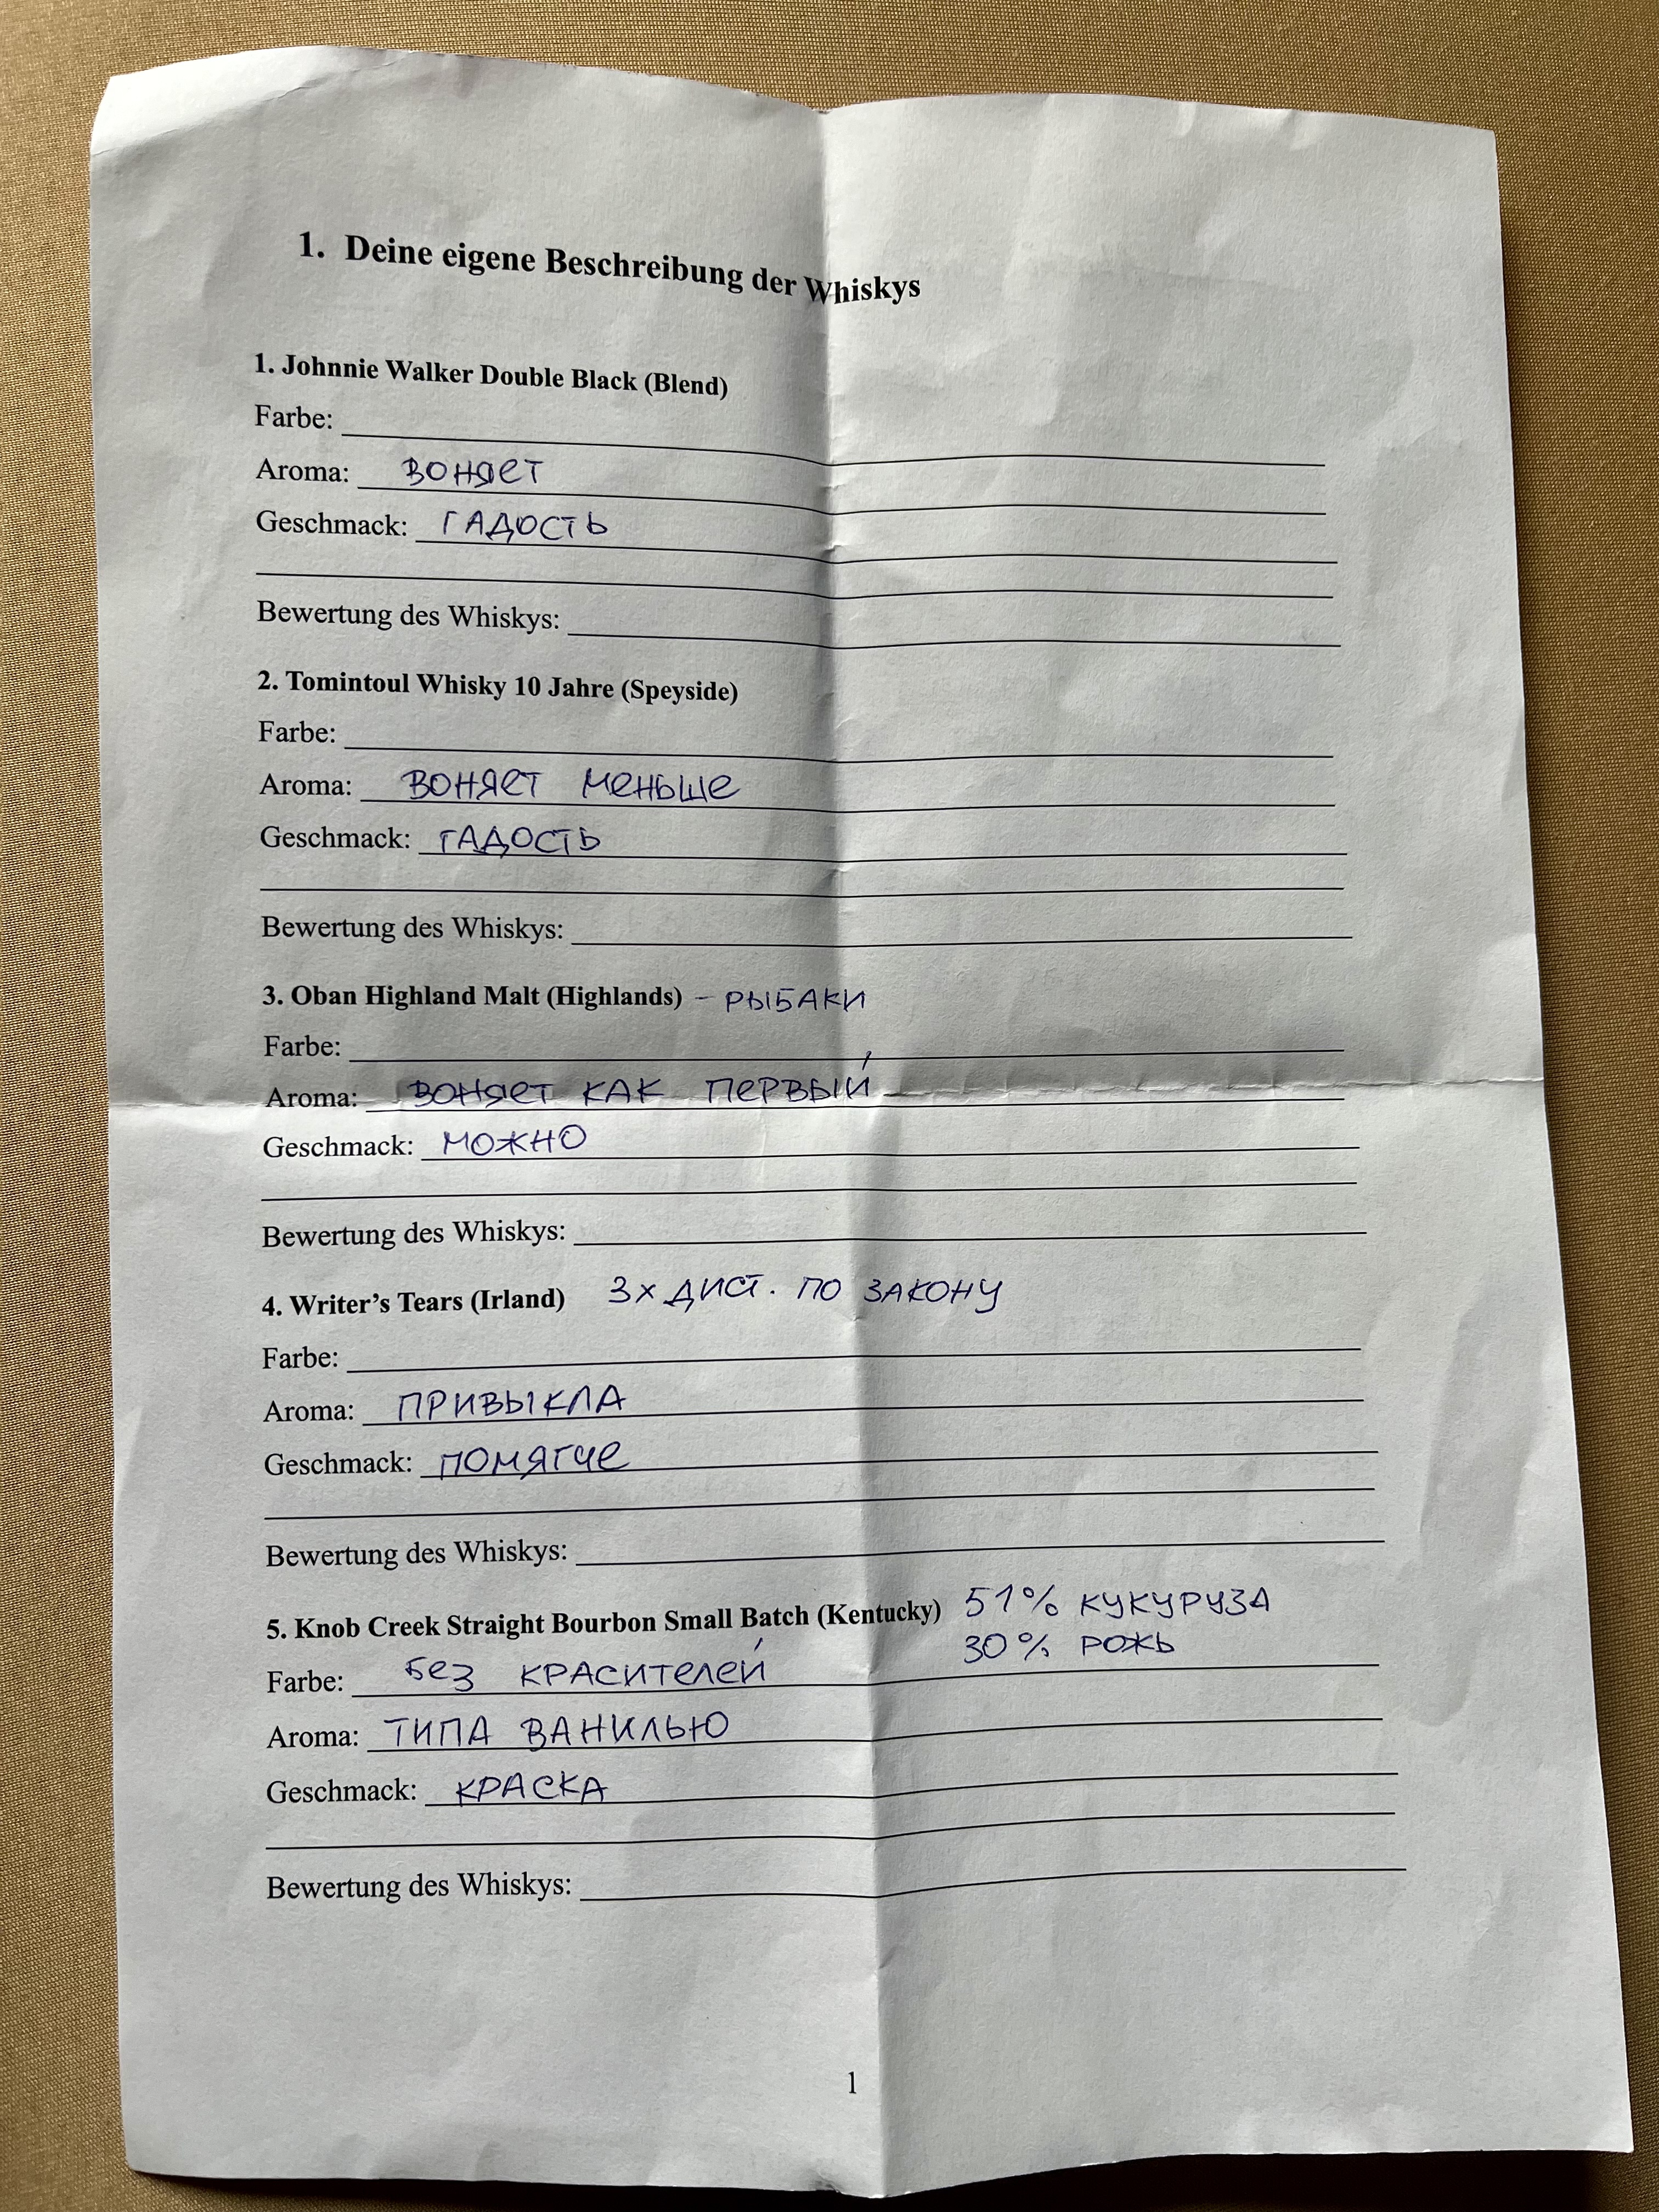 1. Deine eigene Beschreibung der Whiskys
1. Johnnie Walker Double Black (Blend)
Farbe:
Aroma: воняет
Geschmack: ГАДОСТЬ
Bewertung des Whiskys:
2. Tomintoul Whisky 10 Jahre (Speyside)
Farbe:
Aroma: воняет меньше
Geschmack: ГАДОСТЬ
Bewertung des Whiskys:
3. Oban Highland Malt (Highlands) - РЫБАКИ
Farbe:
Aroma: воняет как первый
Geschmack: можно
Bewertung des Whiskys:
4. Writer’s Tears (Irland) 3х дист. по закону
Farbe:
Aroma: ПРИВЫКЛА
Geschmack: помягче
Bewertung des Whiskys:
5. Knob Creek Straight Bourbon Small Batch (Kentucky) 51% КУКУРУЗА
30% РОЖЬ
Farbe: без красителей
Aroma: ТИПА ВАНИЛЬЮ
Geschmack: КРАСКА
Bewertung des Whiskys:
1